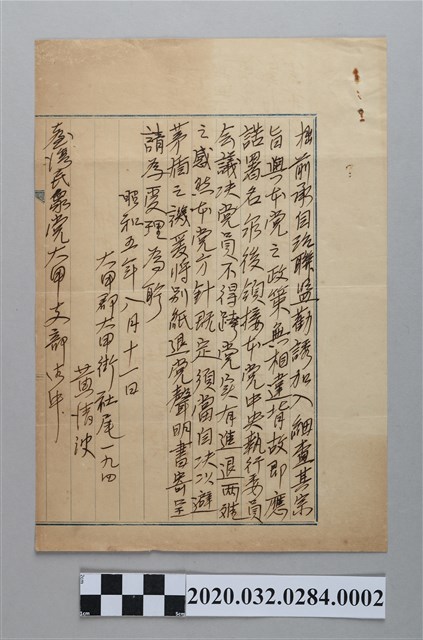 拙前承自治聯盟勸誘加入細查其宗
旨與本党之政策無相違背故即應
諾署名爾後領接本党中央執行委員
会議決党員不得跨党实有進退両難
之感然本党方針既定須當自決以避
矛盾之譏爰将別紙退党聲明書寄呈
請為受理為盼
昭和五年八月十一日
大甲郡大甲街社尾一九四
黄清波
臺湾民衆党大甲支部御中
2020.032.0284.0002
1cm
5cm